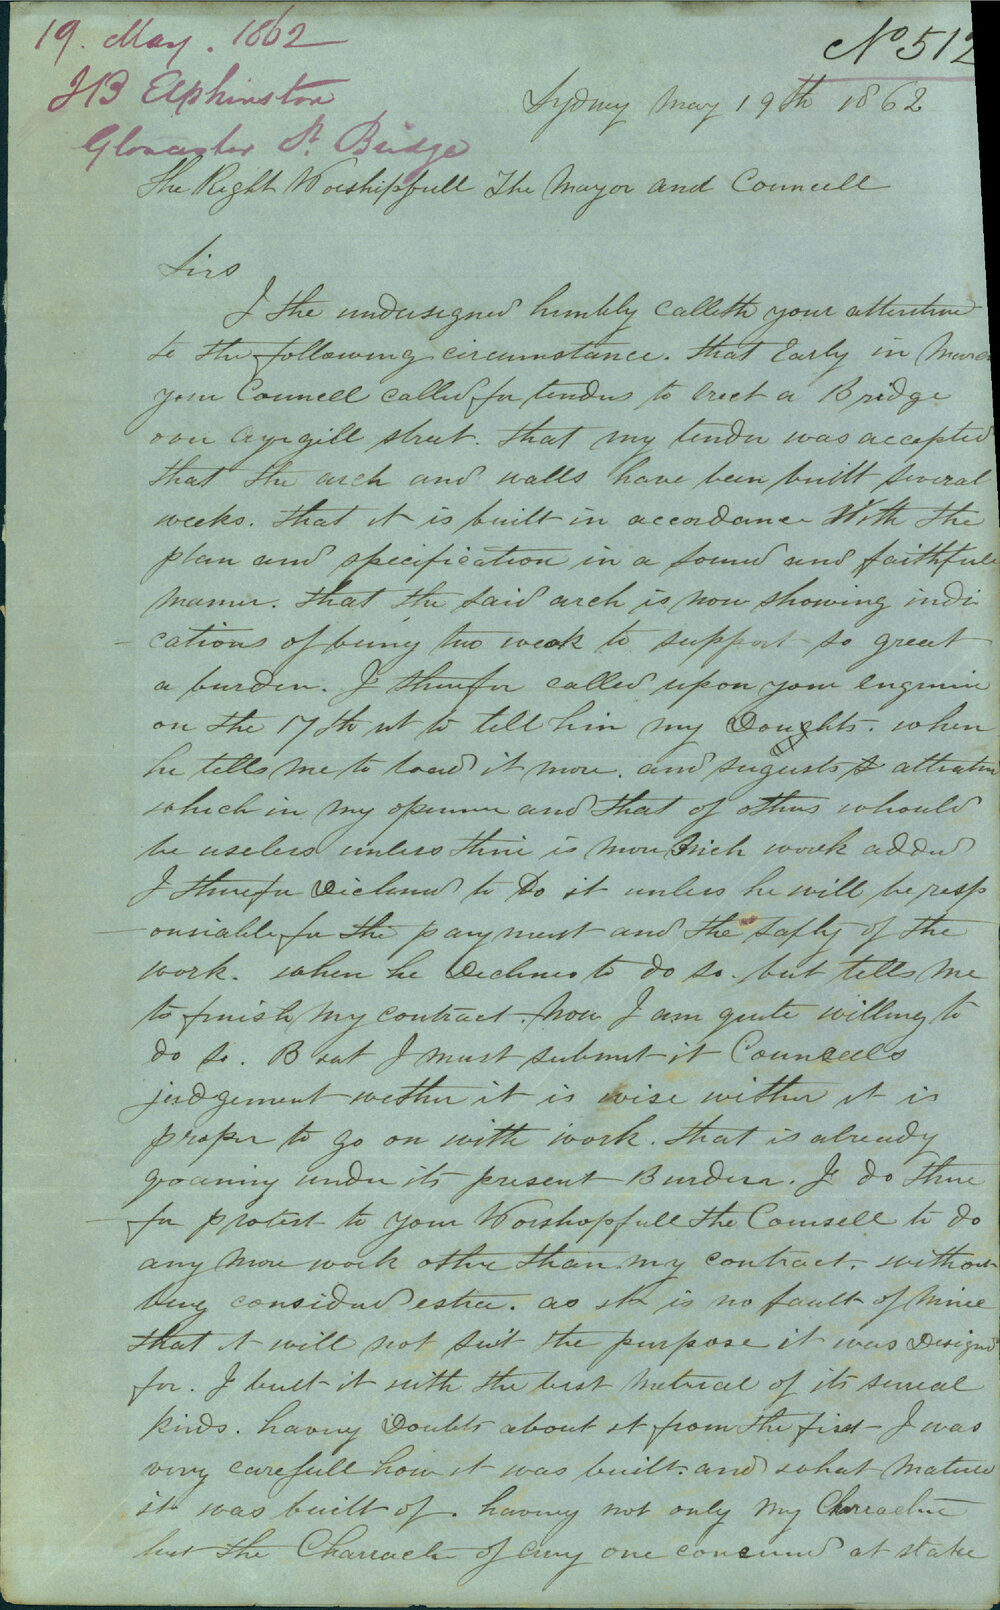 19. May. 1862
No 512
JB Elphinston
Sydney May 19th 1862
Gloucester St. Bridge
The Right Worshipfull The Mayor and Councell
Sirs
I the undersigned humbly calleth your attention
to the following circumstance. that Early in March
your Councell called for tenders to Erect a Bridge
over Argyle street. that my tender was accepted
that the arch and walls have been built several
weeks. that it is built in accordance With the
plan and specification in a sound and faithfull
manner. that the said arch is now showing indi
cations of being two weak to support so great
a burden. I therefor called upon your Engineer
on the 17th to tell him my Doughts. when
he tells me to load it more. and sugests
which in my openion and that of others whould
be useless unless thire is more Brick work added
I therefor Declined to Do it unless he will be resp
onsiable for the payment and the safty of the
work. when he Declines to do so. but tells me
to finish my contract. Now I am quite willing to
do so. But I must submit it Councells
judgement wether it is wise wither it is
proper to go on with work. that is already
groaning under its present Burden. I do there
for protest to your Worshopfull the Counsell to do
any more work other than my contract. without
being considered extra. as it is no fault of Mine
that it will not suit the purpose it was Designed
for. I built it with the best Metreal of its several
kinds. having Doubts about it from the first I was
very carefull how it was built. and what Matrial
it was built of. having not only my Charracter
but the Charracter of every one concerned at stake